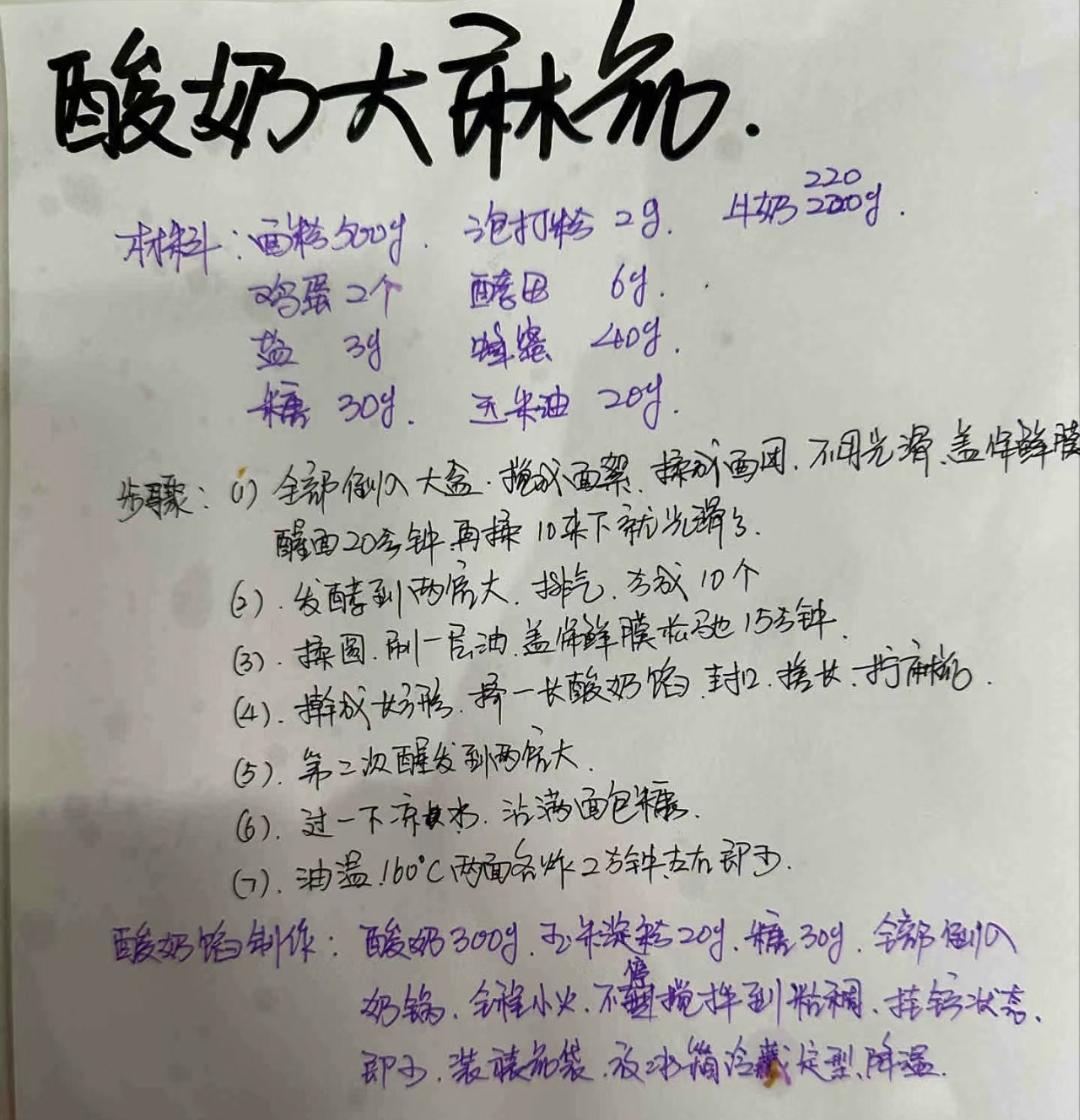 酸奶大麻花.
材料：面粉500g. 泡打粉 2g. 牛奶 220g.
鸡蛋 2个 酵母 6g.
盐 3g 蜂蜜 40g.
糖 30g. 玉米油 20g.
步骤：(1) 全部倒入大盆.搅成面絮.揉成面团.不用光滑.盖保鲜膜
醒面20分钟.再揉10来下就光滑了.
(2).发酵到两倍大.排气.分成10个
(3).揉圆.刷一层油.盖保鲜膜松弛15分钟.
(4).擀成长方形.挤一长酸奶馅.封口.搓长.拧麻花.
(5).第二次醒发到两倍大.
(6).过一下凉水.沾满面包糠.
(7).油温160℃两面各炸2分钟左右即可.
酸奶馅制作：酸奶300g.玉米淀粉20g.糖30g.全部倒入
奶锅.全程小火.不停搅拌到粘稠.挂铲状态.
即可.装裱花袋.放冰箱冷藏定型.降温.